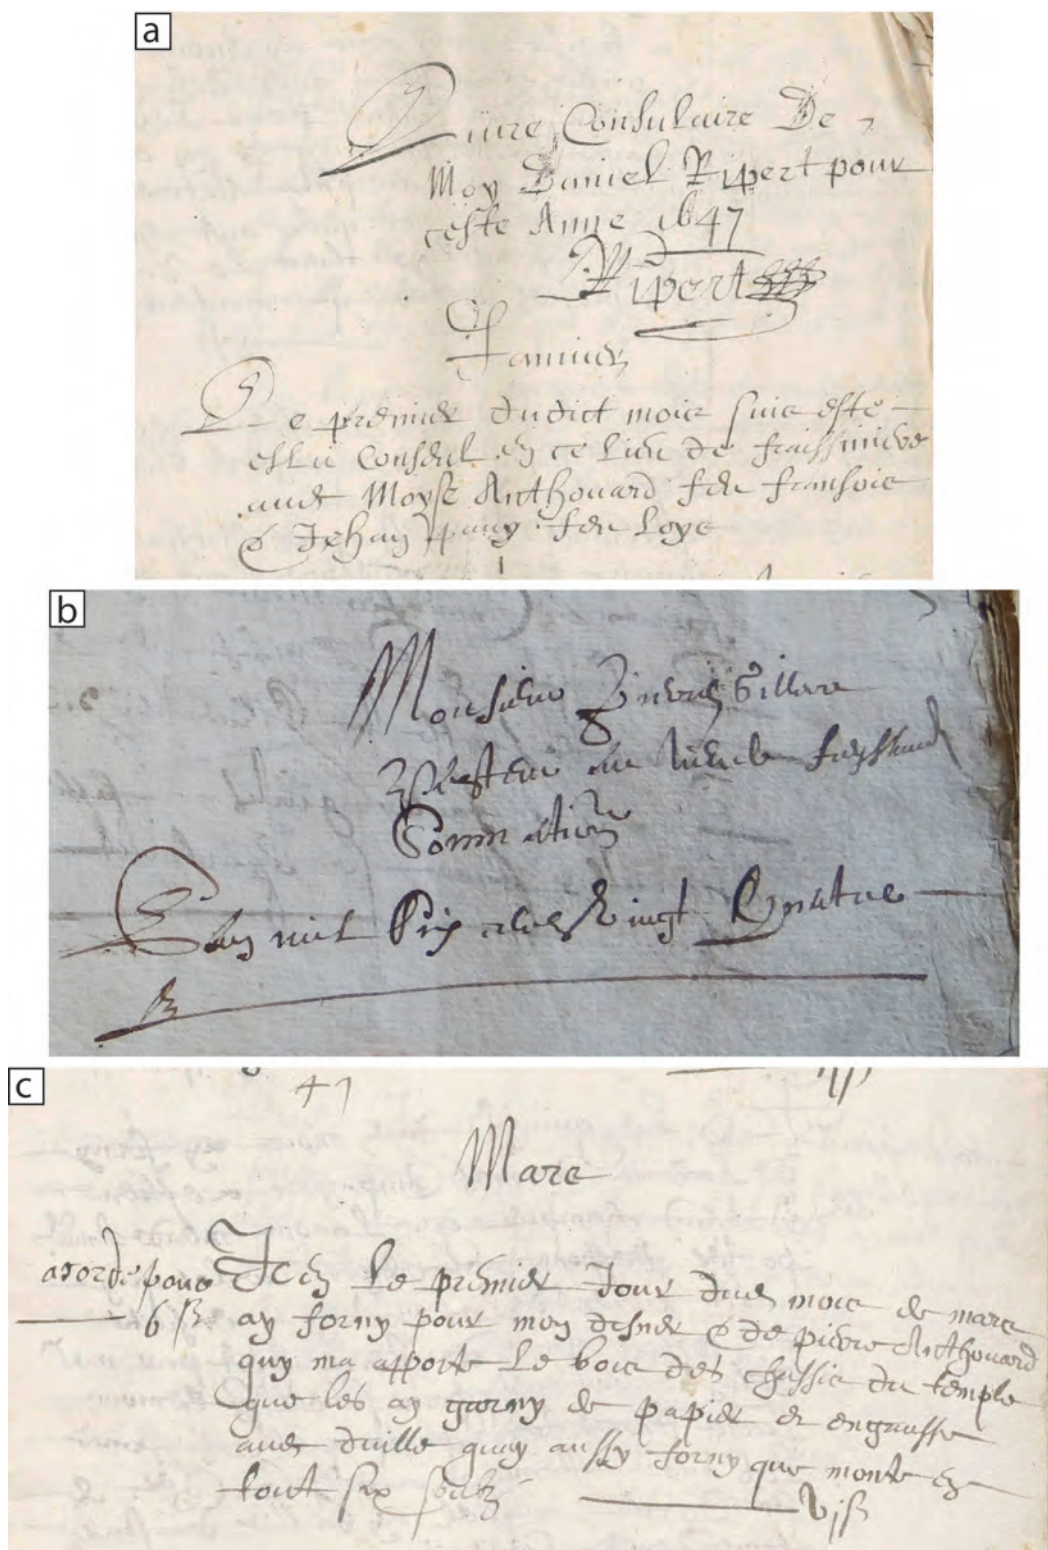 a
Livre Consulaire De
Moy Daniel Ripert pour
ceste Anne 1647
Ripert
Janvier
Le premier dudict mois suis esté
esleu Consul en ce lieu de fraissiniere
aves Moyse Anthouard feu fransois
& Jehan pauy feu Loys
b
Monsieur
Commation
Lan mil six cens Vingt Quatre
c
47
Mars
acordé pour
6 ß
Item le premier Jour dud mois de mars
ay forny pour mon desner & de pierre Anthouard
quy ma apporté le bois des chassis du temple
que les ay garny de papier et engraissé
aves duille quay aussy forny que monte en
tout six soulz
vjß